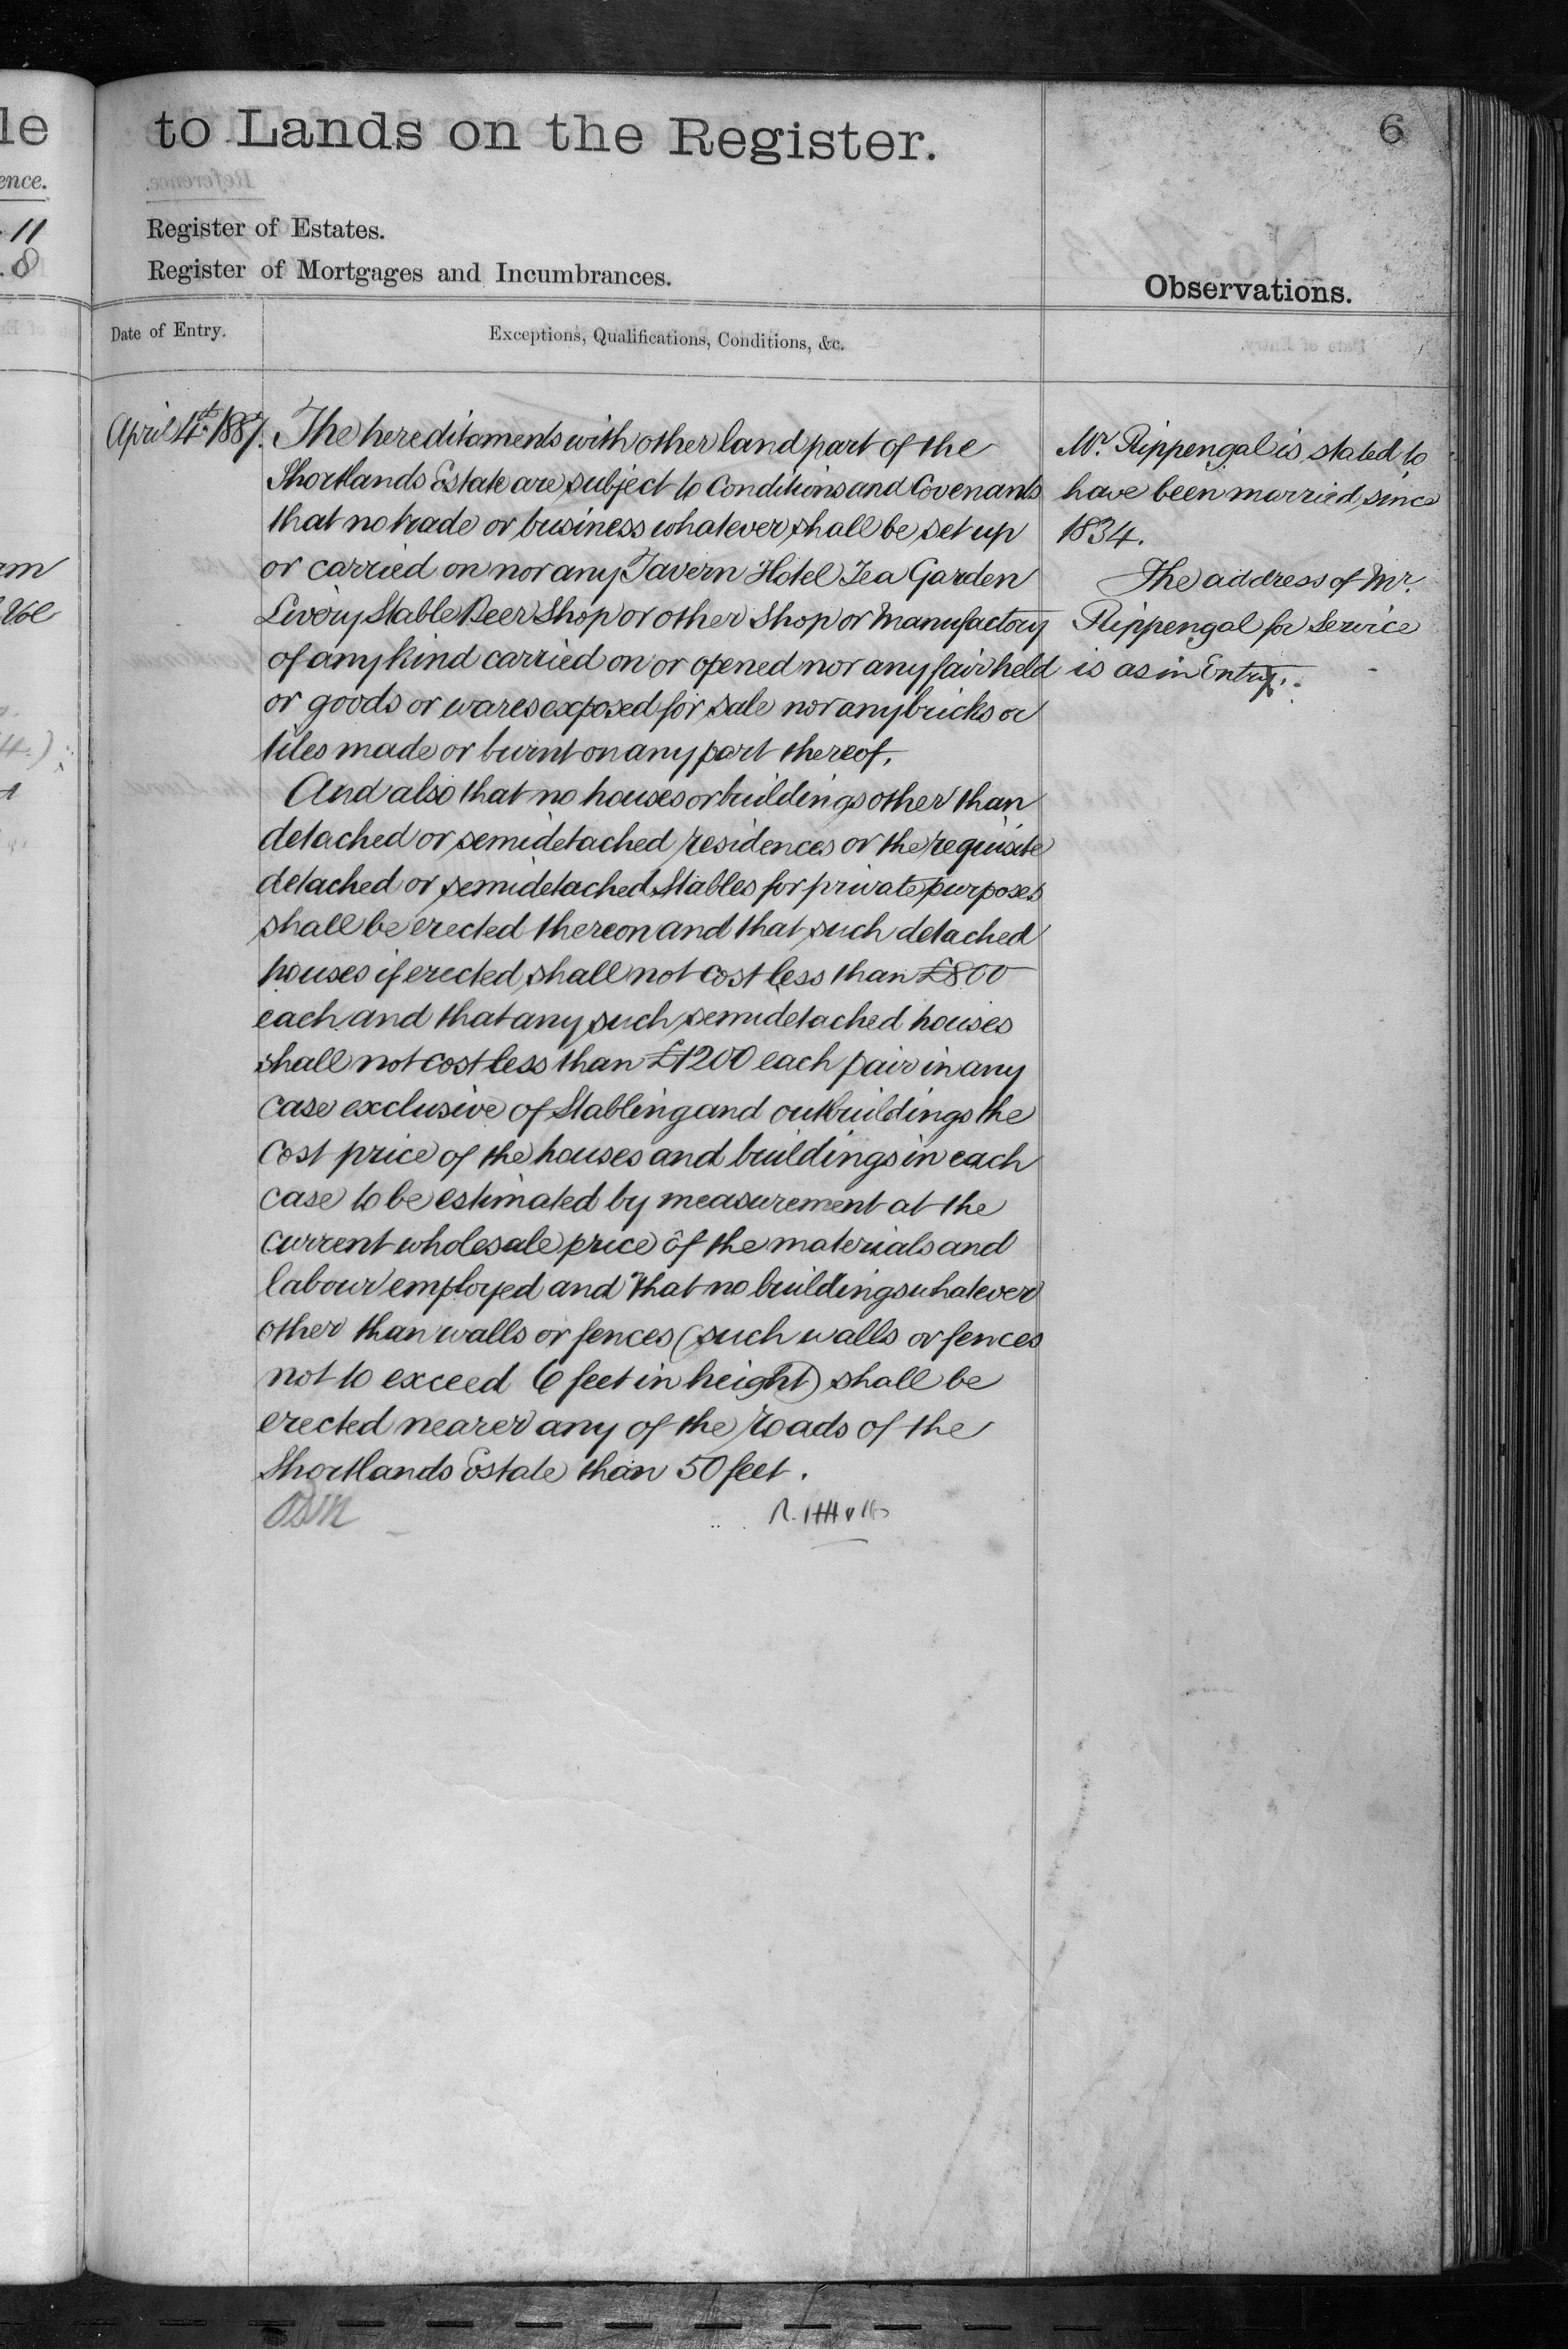 le
to Lands on the Register.
6
ence.
11
8
Register of Estates.
Register of Mortgages and Incumbrances.
Observations.
Date of Entry.
Exceptions, Qualifications, Conditions, &c.
April 4th 1887.
The hereditaments with other land part of the
Shortlands Estate are subject to Conditions and Covenants
that no trade or business whatever shall be set up
or carried on nor any Tavern Hotel Tea Garden
Livery Stable Beer Shop or other Shop or Manufactory
of any kind carried on or opened nor any fair held
or goods or wares exposed for sale nor any bricks or
tiles made or burnt on any part thereof.
And also that no houses or buildings other than
detached or semidetached residences or the requisite
detached or semidetached Stables for private purposes
shall be erected thereon and that such detached
houses if erected shall not cost less than £800
each and that any such semidetached houses
shall not cost less than £1200 each pair in any
case exclusive of Stabling and outbuildings the
cost price of the houses and buildings in each
case to be estimated by measurement at the
current wholesale price of the materials and
labour employed and that no buildings whatever
other than walls or fences (such walls or fences
not to exceed 6 feet in height) shall be
erected nearer any of the roads of the
Shortlands Estate than 50 feet.
Mr. Rippengal is stated to
have been married since
1834.
The address of Mr.
Rippengal for Service
is as in Entry.